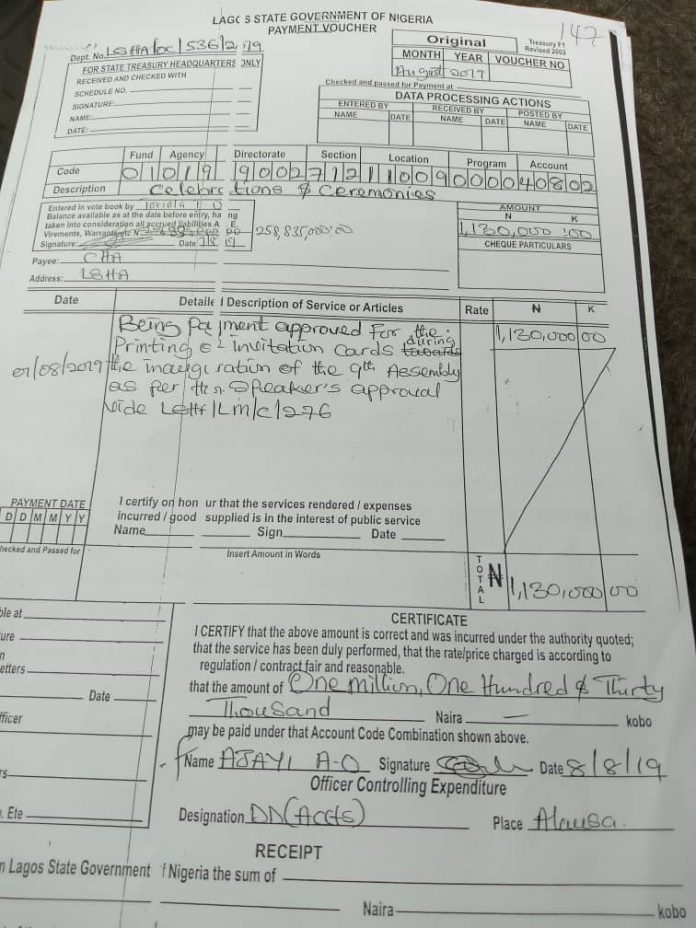 LAGOS STATE GOVERNMENT OF NIGERIA
PAYMENT VOUCHER
147
Original
Treasury F1
Revised 2003
MONTH YEAR VOUCHER NO
August 2019
Dept. No. LSHA/oc/536/2 19
FOR STATE TREASURY HEADQUARTERS ONLY
RECEIVED AND CHECKED WITH
SCHEDULE NO.
SIGNATURE:
NAME:
DATE:
Checked and passed for Payment at
DATA PROCESSING ACTIONS
ENTERED BY RECEIVED BY POSTED BY
NAME DATE NAME DATE NAME DATE
Fund Agency Directorate Section Location Program Account
Code 01019 900271211009000040802
Description Celebrations & Ceremonies
Entered in vote book by
Balance available as at the date before entry, ha ng
taken into consideration all accrued liabilities A E
Virements, Warrants etc N
258,835,000:00
Signature: Date 7/8/19
AMOUNT
N K
1,130,000:00
CHEQUE PARTICULARS
Payee: CHA
Address: LSHA
Date Detailed Description of Service or Articles Rate N K
Being Payment approved For the
Printing of Invitation Cards towards during
07/08/2019 the inauguration of the 9th Assembly
as per the Speaker's approval
Vide LSHA/LM/C/276
1,130,000 00
PAYMENT DATE
D D M M Y Y
I certify on hon ur that the services rendered / expenses
incurred / good supplied is in the interest of public service
Name Sign. Date
hecked and Passed for
Insert Amount in Words
TOTAL ₦ 1,130,000 00
ble at
ure
n
etters
Date
fficer
rs
. Ete
CERTIFICATE
I CERTIFY that the above amount is correct and was incurred under the authority quoted;
that the service has been duly performed, that the rate/price charged is according to
regulation / contract fair and reasonable.
that the amount of One Million, One Hundred & Thirty
Thousand Naira — kobo
may be paid under that Account Code Combination shown above.
Name AJAYI A-O Signature Date 8/8/19
Officer Controlling Expenditure
Designation DD(Accts) Place Alausa.
RECEIPT
n Lagos State Government f Nigeria the sum of
Naira kobo